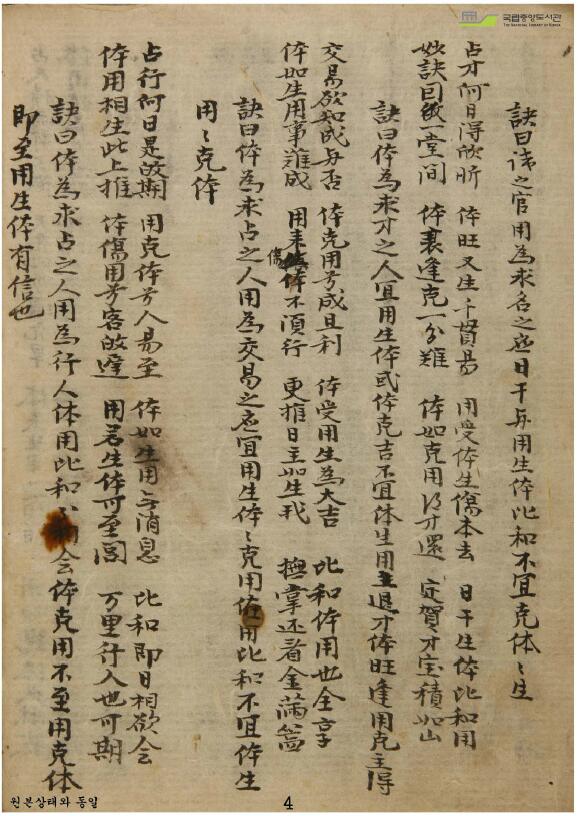 국립중앙도서관
THE NATIONAL LIBRARY OF KOREA
訣曰詳之官用為求名之應日干與用生体比和不宜克体〻生
占才何日得欣昕 体旺又生千貫易 用受体生傷本去 日干生体比和用
訣曰 一堂間 体衰逢克一分難 体如克用 才還 定賀才宝積如山
訣曰体為求才之人宜用生体或体克吉不宜体生用主退才体旺逢用克主得
交易欲和成与否 体克用兮成且利 体受用生為大吉 比和体用也全享
体如生用事難成 用来傷体不須行 更推日主如生我 撫掌还看金滿盆
訣曰体為求占之人用為交易之应宜用生体〻克用 用比和不宜体生
用〻克体
占行何日是故期 用克体兮人易至 体如生用与消息 比和即日相欲会
体用相生此上推 体傷用兮客故違 用若生体可至 万里行人也可期
訣曰体為求占之人用為行人体用比和 会体克用不至用克体
即至用生体有信也
원본상태와 동일
4